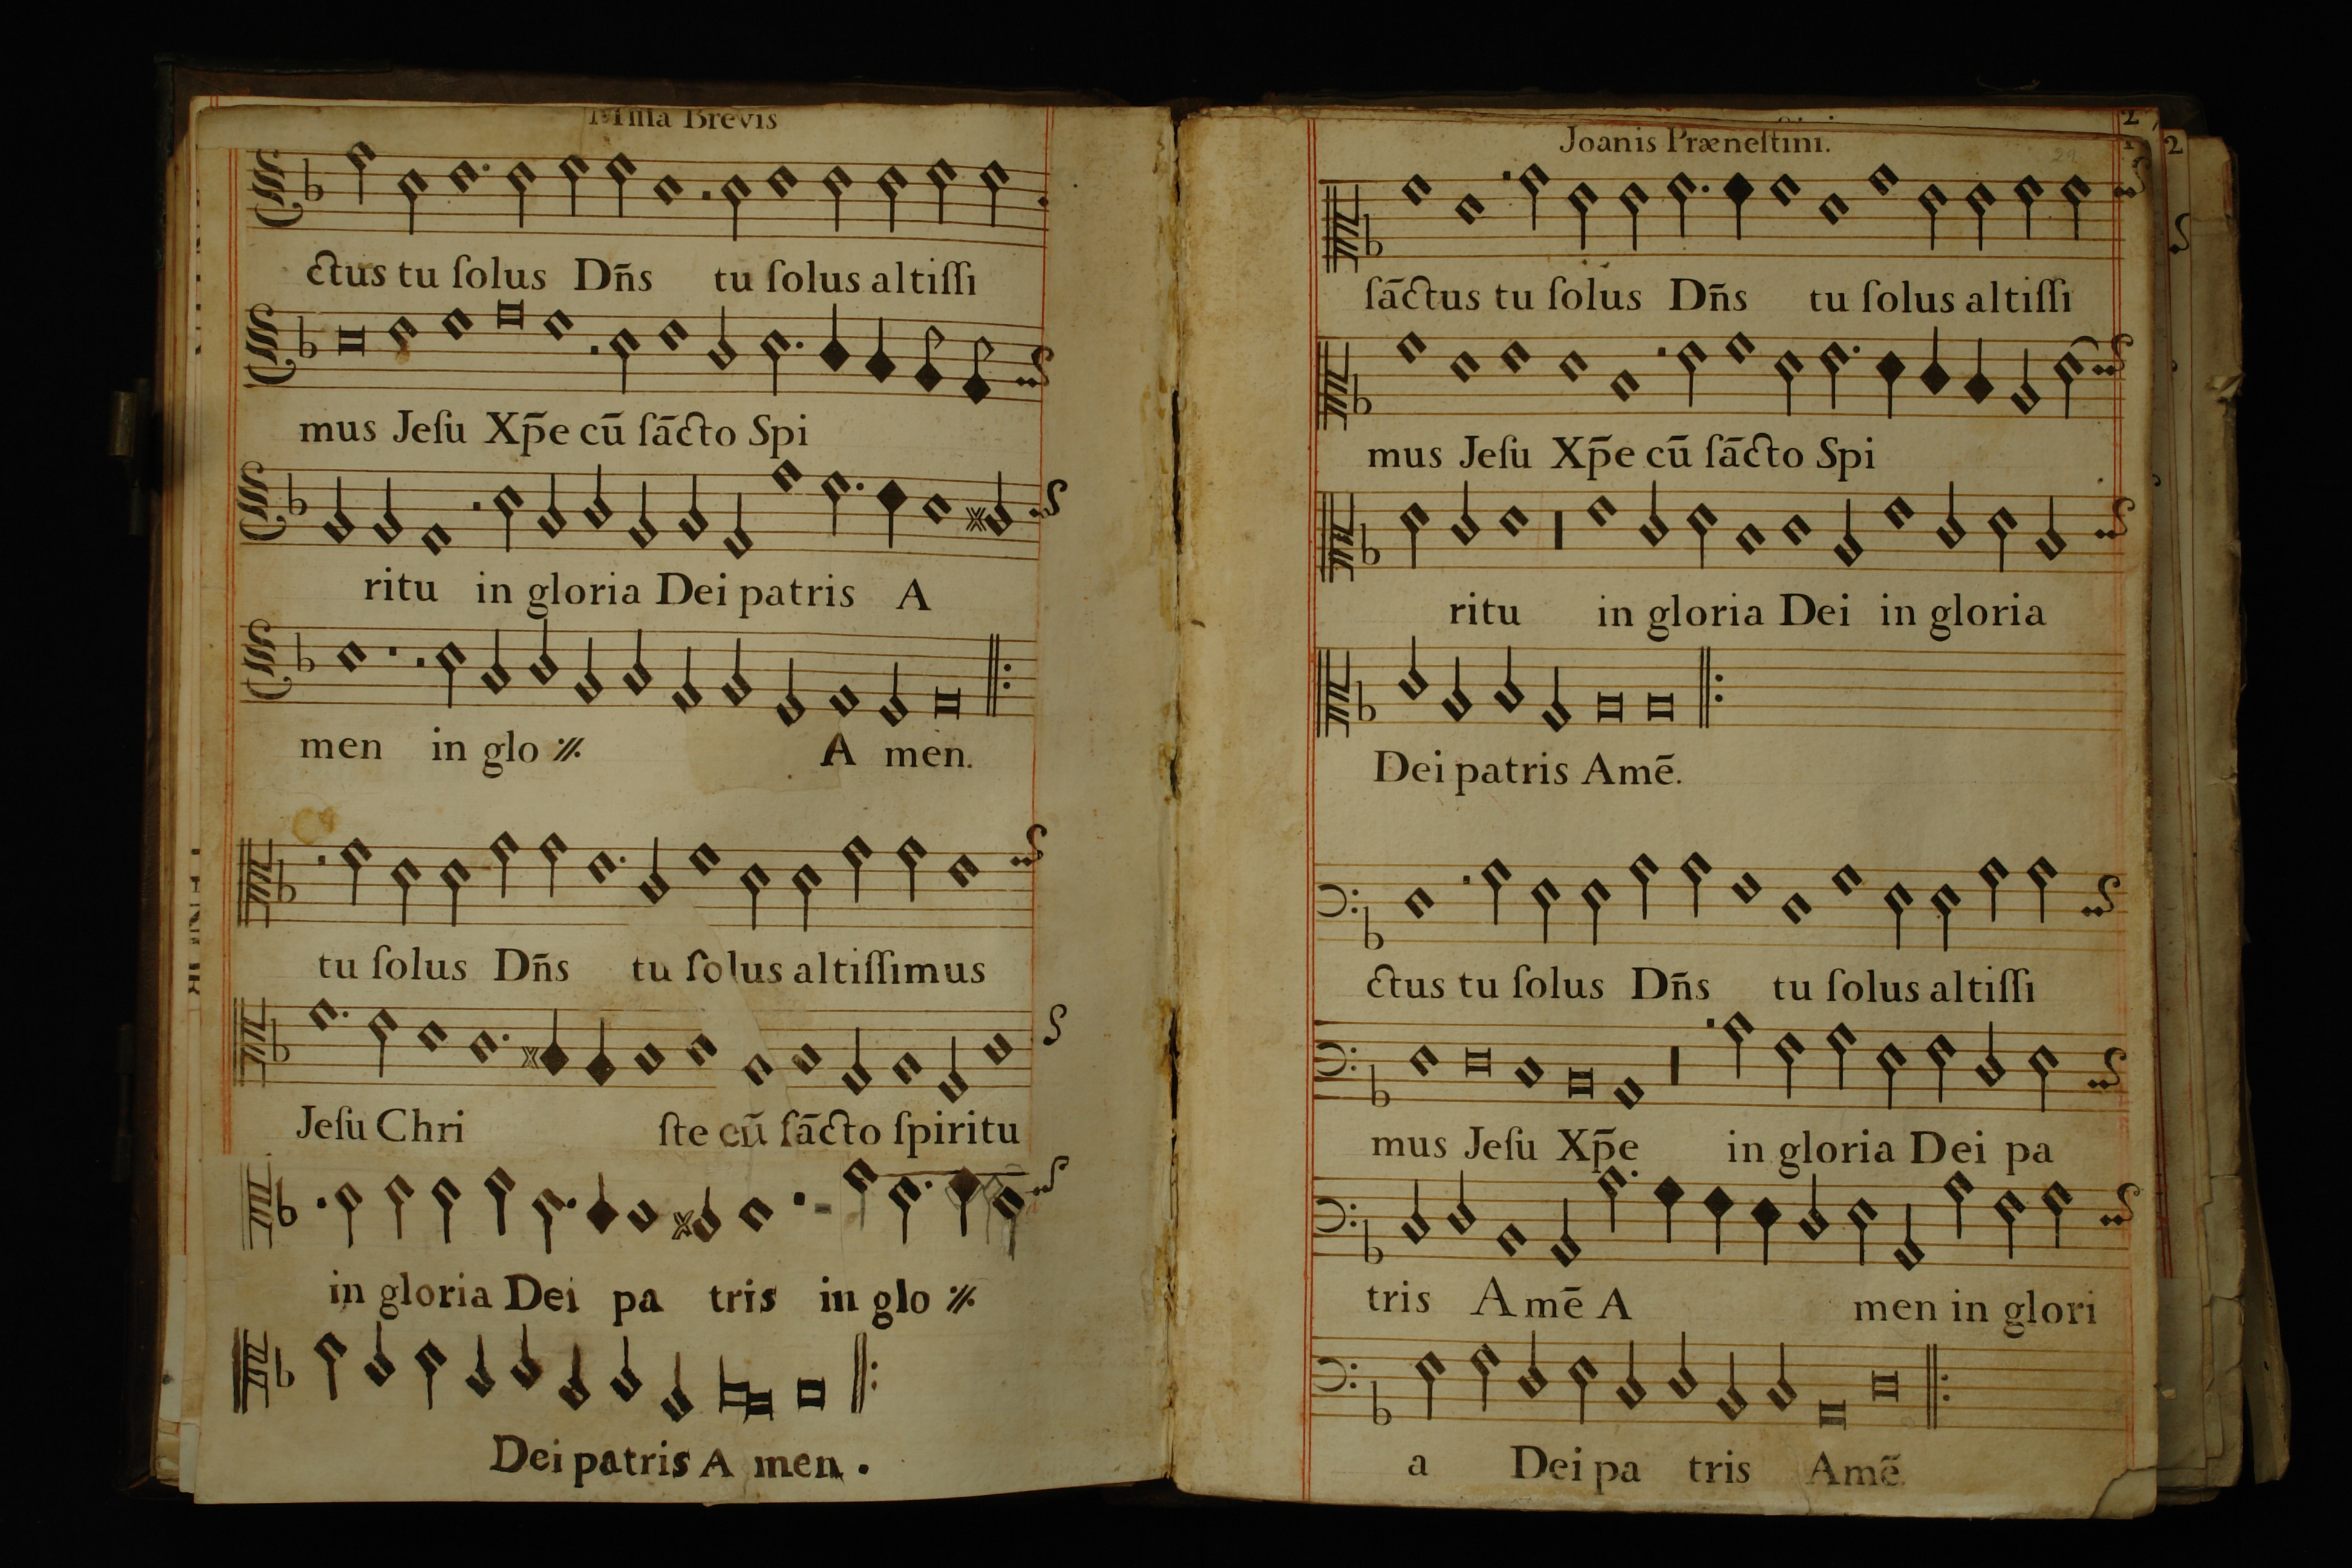 Miſſa Brevis
ctus tu ſolus Dn̄s tu ſolus altiſſi
mus Jeſu Xp̄e cū ſācto Spi
ritu in gloria Dei patris A
men in glo ·//. A men.
tu ſolus Dn̄s tu ſolus altiſſimus
Jeſu Chri ſte cū ſācto ſpiritu
in gloria Dei pa tris in glo ·//.
Dei patris A men.
Joanis Præneſtini.
ſāctus tu ſolus Dn̄s tu ſolus altiſſi
mus Jeſu Xp̄e cū ſācto Spi
ritu in gloria Dei in gloria
Dei patris Amē.
ctus tu ſolus Dn̄s tu ſolus altiſſi
mus Jeſu Xp̄e in gloria Dei pa
tris Amē A men in glori
a Dei pa tris Amē